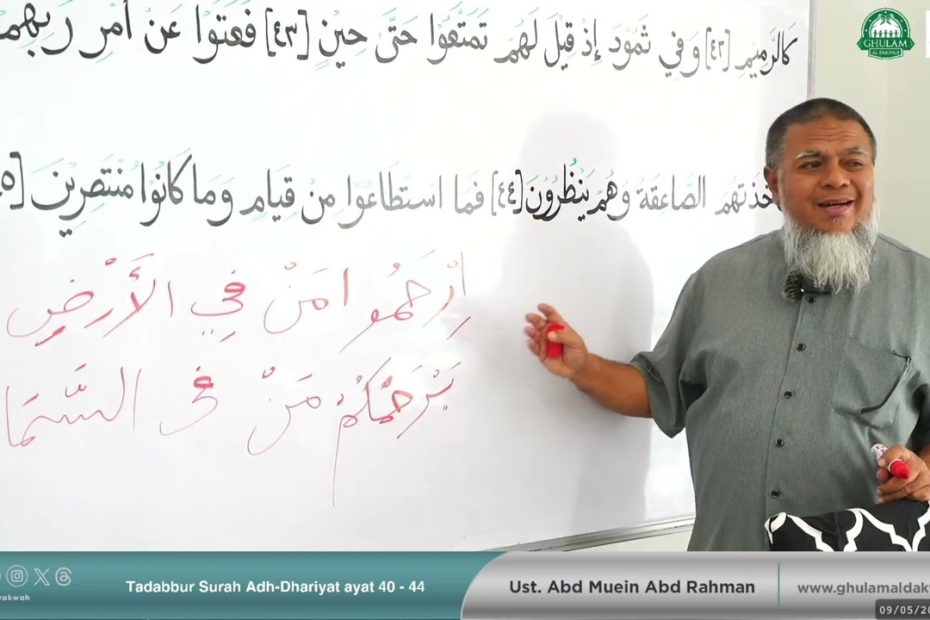 كَالرَّمِيمِ [٤٢] وَفِي ثَمُوْدَ إِذْ قِيْلَ لَهُمْ تَمَتَّعُوْا حَتَّى حِيْنٍ [٤٣] فَعَتَوْا عَنْ أَمْرِ رَبِّهِمْ
خَذَتْهُمُ الصَّاعِقَةُ وَهُمْ يَنْظُرُوْنَ [٤٤] فَمَا اسْتَطَاعُوْا مِنْ قِيَامٍ وَمَا كَانُوْا مُنْتَصِرِيْنَ
اِرْحَمُوا مَنْ فِي الأَرْضِ
يَرْحَمْكُمْ مَنْ فِي السَّمَا
GHULAM
AL DAKWAH
Tadabbur Surah Adh-Dhariyat ayat 40 - 44
Ust. Abd Muein Abd Rahman
www.ghulamaldakw
09/05/20